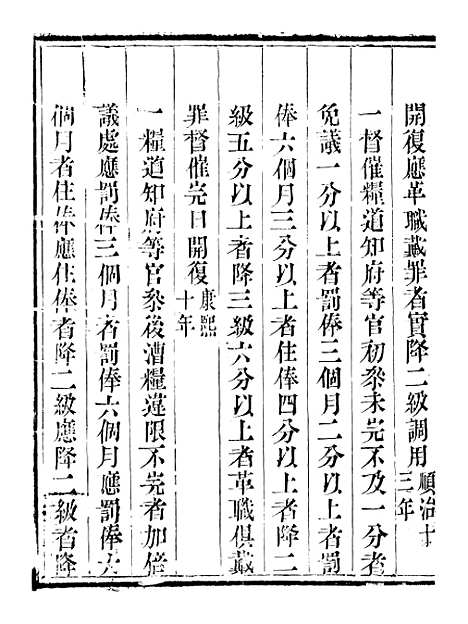 開復應革職戴罪者實降二級調用順治十三年
一督催糧道知府等官初參未完不及一分者
免議一分以上者罰俸三個月二分以上者罰
俸六個月三分以上者住俸四分以上者降二
級五分以上者降三級六分以上者革職俱戴
罪督催完日開復康熙十年
一糧道知府等官參後漕糧違限不完者加倍
議處應罰俸三個月者罰俸六個月應罰俸六
個月者住俸應住俸者降二級應降二級者降